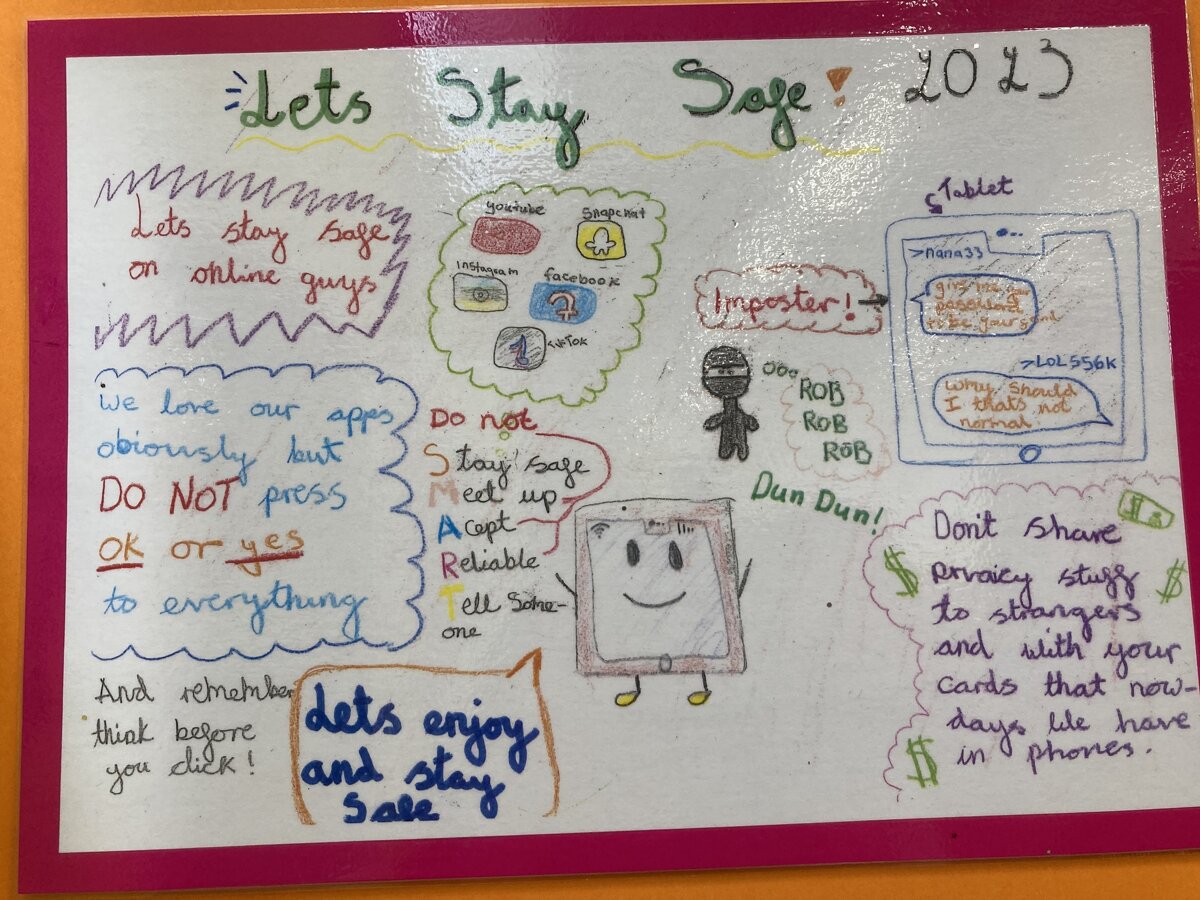 Lets Stay Safe! 2023
Lets stay safe
on online guys
Youtube
Snapchat
Instagram
facebook
TikTok
Imposter!
Tablet
>nana33
give me your
password
>LOL556k
Why should
I thats not
normal
ROB
ROB
ROB
Dun Dun!
we love our apps
obiously but
DO NOT press
OK or yes
to everything
Do not
Stay safe
Meet up
Acept
Reliable
Tell Some-
one
Don't share
privaicy stuff
to strangers
and with your
cards that now-
days We have
in phones.
And remember
think before
you click!
Lets enjoy
and stay
Safe